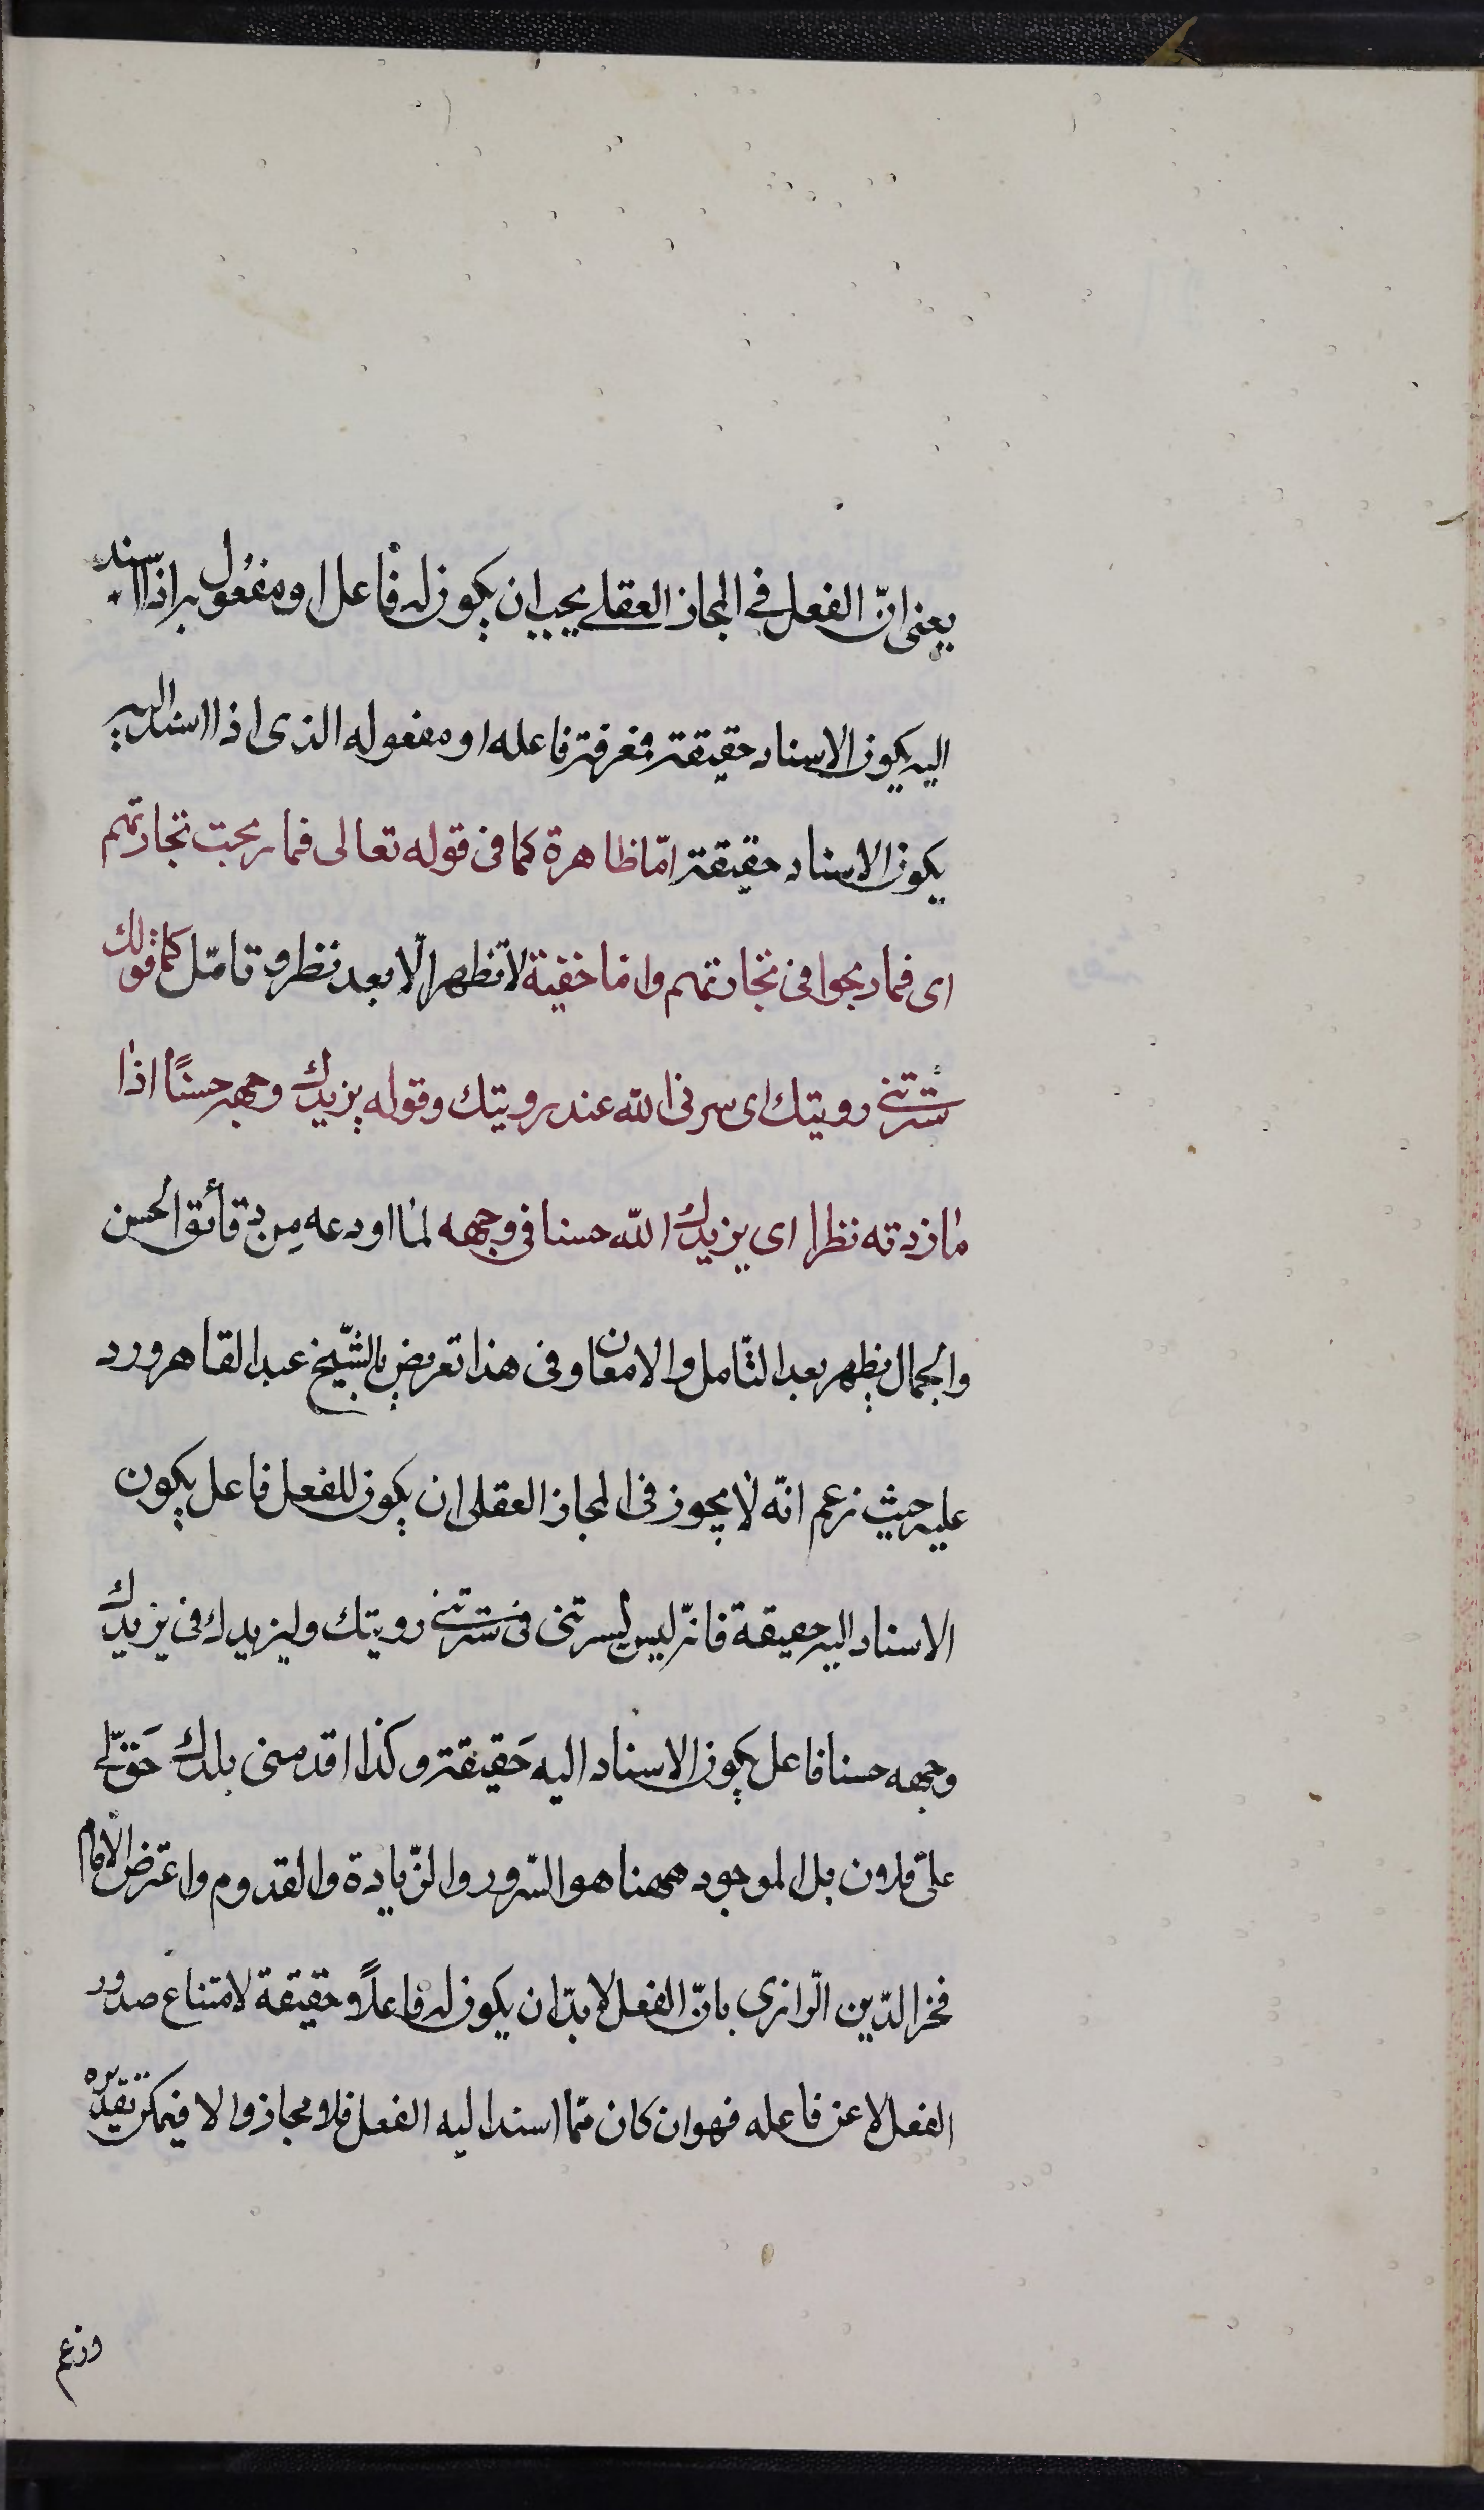 يعنى انّ الفعل فى المجاز العقلى يجب ان يكون له فاعل او مفعول به اذا اسند
اليه يكون الاسناد حقيقة فمعرفة فاعله او مفعوله الذى اذا اسند اليه
يكون الاسناد حقيقة امّا ظاهرة كما فى قوله تعالى فما ربحت تجارتهم
اى فما ربحوا فى تجارتهم واما خفية لا تظهر الّا بعد نظر و تامّل كما فى قولك
سَرّتنى رويتك اى سرنى الله عند رويتك وقوله يزيدك وجهه حسنًا اذا
ما زدته نظرا اى يزيدك الله حسنا فى وجهه لما اودعه من دقائق الحسن
والجمال يظهر بعد التّامل والامعان وفى هذا تعريض بالشّيخ عبد القاهر ورد
عليه حيث زعم انّه لا يجوز فى المجاز العقلى ان يكون للفعل فاعل يكون
الاسناد اليه حقيقة فانّه ليس لسرتنى فى سَرّتنى رويتك وليزيدك فى يزيدك
وجهه حسنا فاعل يكون الاسناد اليه حَقيقة و كذا اقدمنى بلدك حَقّ لى
على فلان بل الموجود ههنا هو السّرور والزّيادة والقدوم واعترض الامام
فخر الدّين الرّازى بانّ الفعل لا بدّ ان يكون له فاعلاً و حقيقة لامتناع صدور
الفعل لا عن فاعله فهو ان كان ممّا اسند اليه الفعل فلا مجاز والا فيمكن تقديره
وزعم